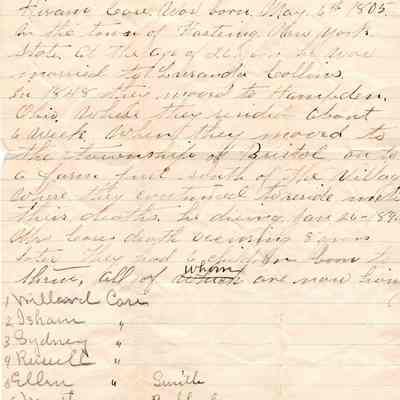 Hiram Case. Was born. May. 6th 1805.
In the town of Hasting. New York
State. At the age of 21 he was
married to Luranda Collins.
In 1848 they moved to Hampden.
Ohio. Where they resided about
a week. When they moved to
the township of Bristol on to
a farm just south of the Villag
Where they continued to reside
their deaths. he dieing. Jan 20 - 18
Mrs Cases death occuring 8 years
later they had born to
them, all of which whom are now livin
1 Millard Case
2 Isham "
3 Sydney "
4 Russell "
5 Ellen " Smith